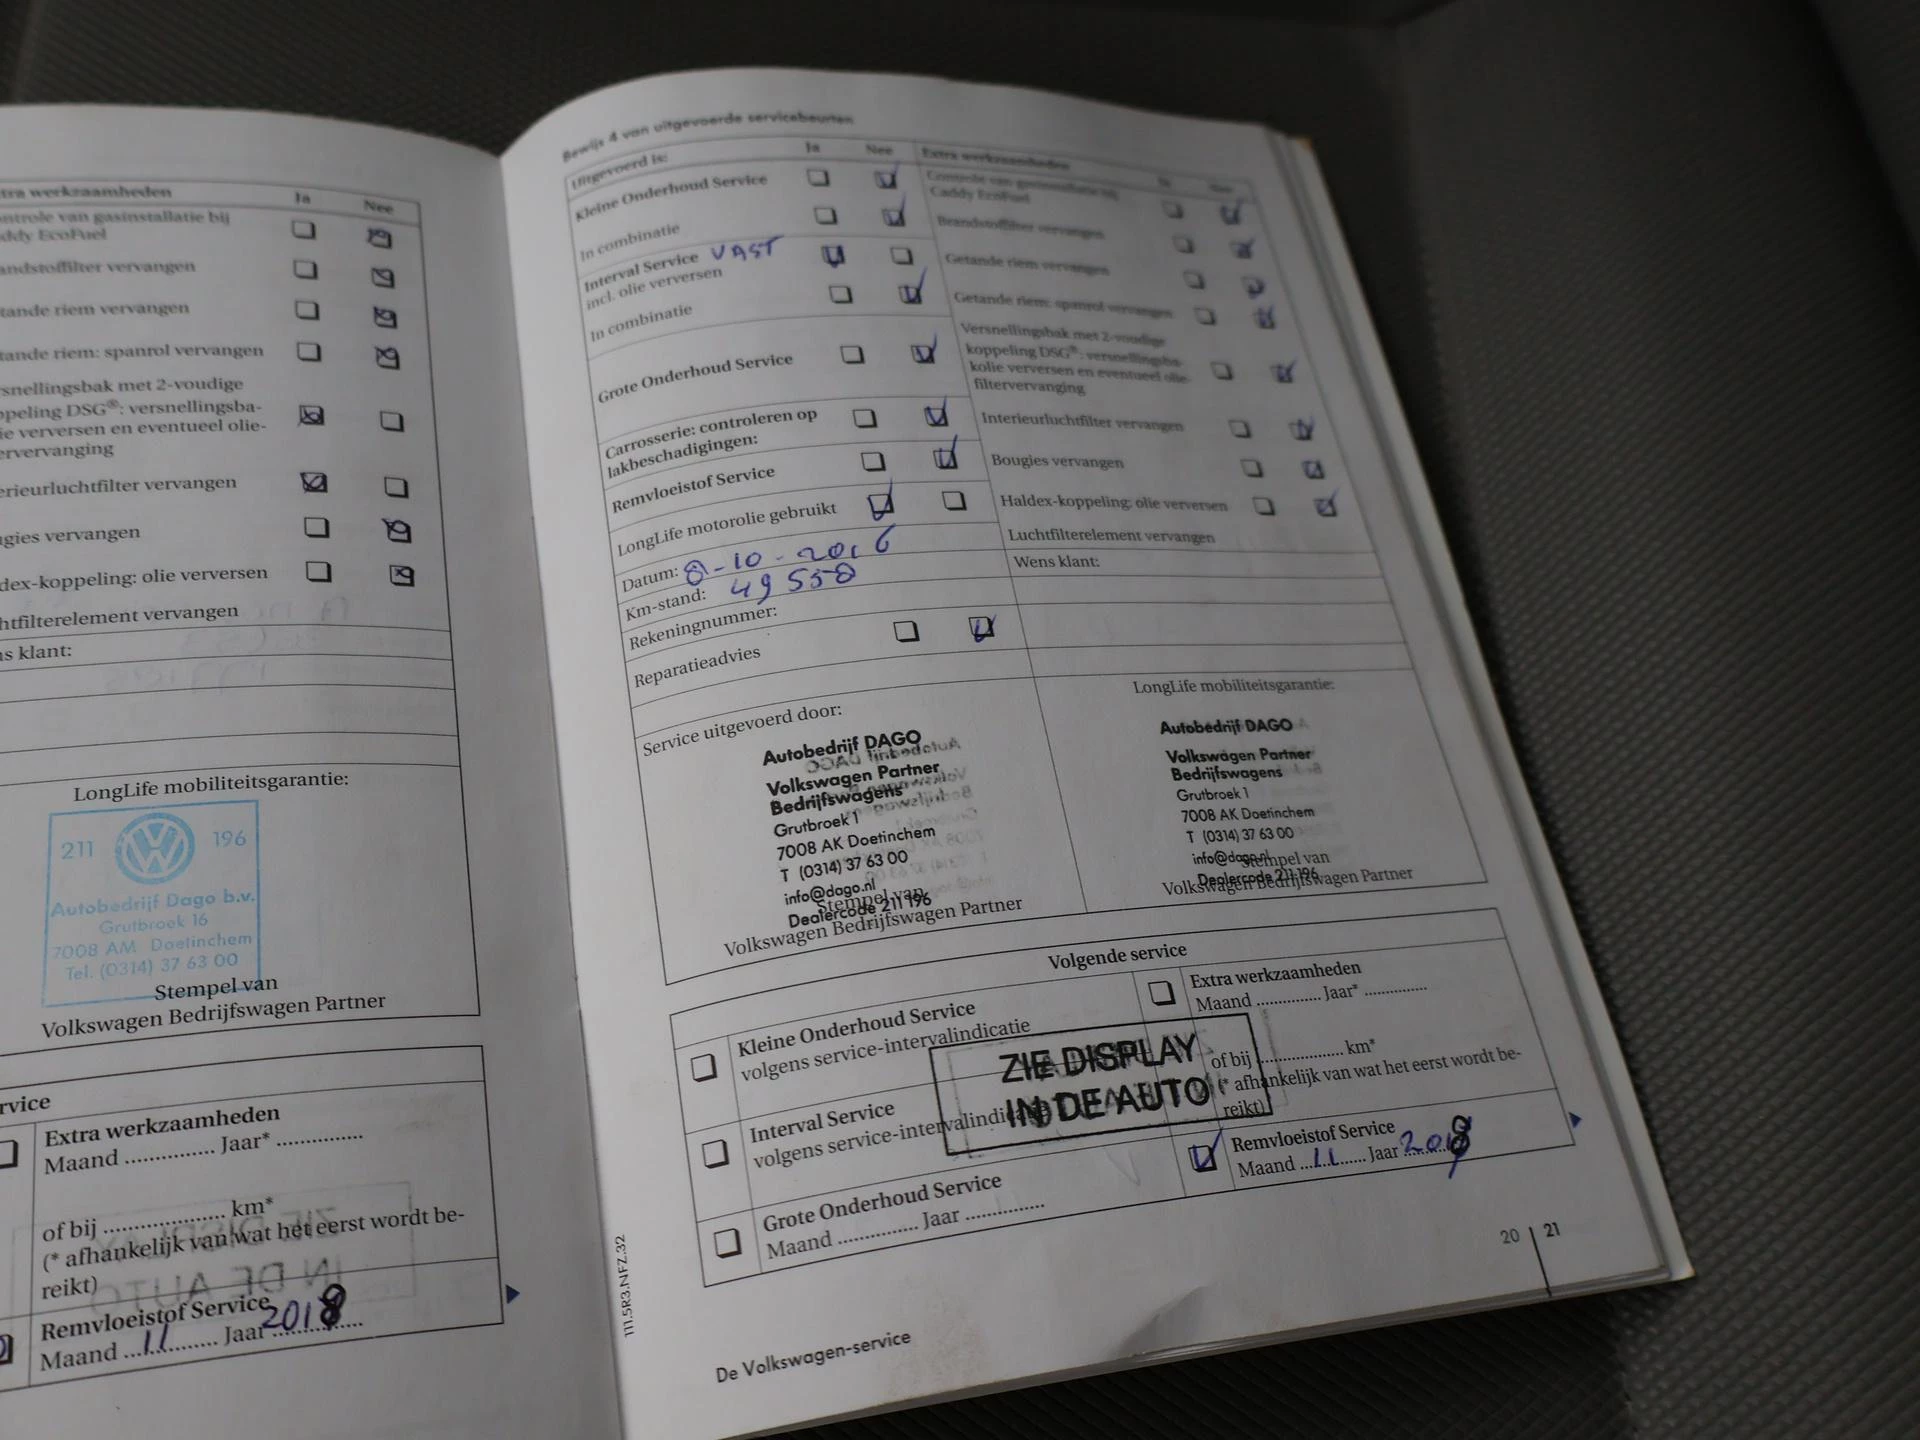 tra werkzaamheden Ja Nee
ntrole van gasinstallatie bij
ddy EcoFuel
andstoffilter vervangen
tande riem vervangen
tande riem: spanrol vervangen
rsnellingsbak met 2-voudige
ppeling DSG®: versnellingsba-
ie verversen en eventueel olie-
ervervanging
erieurluchtfilter vervangen
gies vervangen
dex-koppeling: olie verversen
htfilterelement vervangen
ns klant:
LongLife mobiliteitsgarantie:
211 196
Autobedrijf Dago b.v.
Grutbroek 16
7008 AM Doetinchem
Tel. (0314) 37 63 00
Stempel van
Volkswagen Bedrijfswagen Partner
rvice
Extra werkzaamheden
Maand ............... Jaar* ...............
of bij .................... km*
(* afhankelijk van wat het eerst wordt be-
reikt)
Remvloeistof Service
Maand 11 Jaar 2018
Bewijs 4 van uitgevoerde servicebeurten
Uitgevoerd is: Ja Nee
Kleine Onderhoud Service
In combinatie
Interval Service VAST
incl. olie verversen
In combinatie
Grote Onderhoud Service
Carrosserie: controleren op
lakbeschadigingen:
Remvloeistof Service
LongLife motorolie gebruikt
Datum: 8-10-2016
Km-stand: 49 558
Rekeningnummer:
Reparatieadvies
Extra werkzaamheden Ja Nee
Controle van gasinstallatie bij
Caddy EcoFuel
Brandstoffilter vervangen
Getande riem vervangen
Getande riem: spanrol vervangen
Versnellingsbak met 2-voudige
koppeling DSG®: versnellingsba-
kolie verversen en eventueel olie-
filtervervanging
Interieurluchtfilter vervangen
Bougies vervangen
Haldex-koppeling: olie verversen
Luchtfilterelement vervangen
Wens klant:
Service uitgevoerd door:
Autobedrijf DAGO
Volkswagen Partner
Bedrijfswagens
Grutbroek 1
7008 AK Doetinchem
T (0314) 37 63 00
info@dago.nl
Stempel van
Dealercode 211 196
Volkswagen Bedrijfswagen Partner
LongLife mobiliteitsgarantie:
Autobedrijf DAGO
Volkswagen Partner
Bedrijfswagens
Grutbroek 1
7008 AK Doetinchem
T (0314) 37 63 00
info@dago.nl
Stempel van
Dealercode 211 196
Volkswagen Bedrijfswagen Partner
Volgende service
Kleine Onderhoud Service
volgens service-intervalindicatie
Interval Service
volgens service-intervalindicatie
Grote Onderhoud Service
Maand ............... Jaar ...............
ZIE DISPLAY
IN DE AUTO
Extra werkzaamheden
Maand ............... Jaar* ...............
of bij .................... km*
(* afhankelijk van wat het eerst wordt be-
reikt)
Remvloeistof Service
Maand 11 Jaar 2018
111.5R3.NFZ.32
De Volkswagen-service
20 21